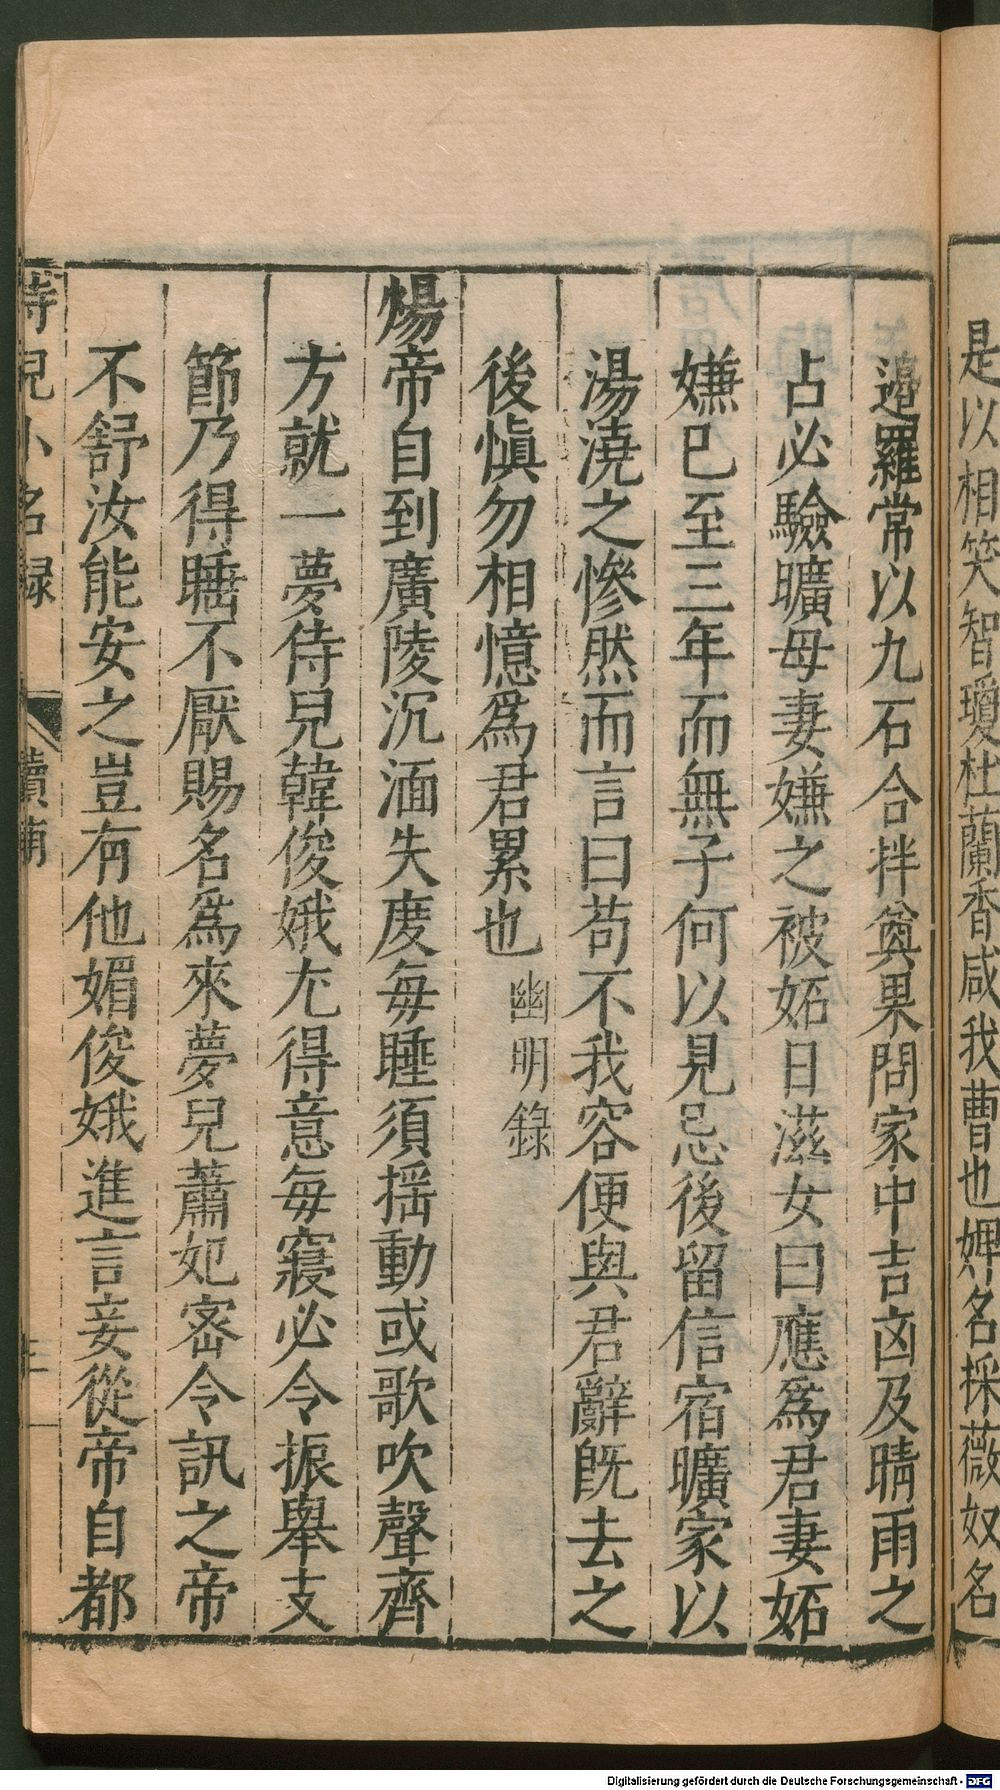 是以相笑智瓊杜蘭香咸我曹也婢名採薇奴名
邉羅常以九石合拌奠果問家中吉凶及晴雨之
占必驗曠母妻嫌之被妬日滋女曰應爲君妻妬
嫌已至三年而無子何以見忌後留信宿曠家以
湯澆之慘然而言曰苟不我容便與君辭旣去之
後愼勿相憶爲君累也 幽明錄
煬帝自到廣陵沉湎失度每睡須揺動或歌吹聲齊
方就一夢侍兒韓俊娥尤得意每寢必令振舉支
節乃得睡不厭賜名爲來夢兒蕭妃宻令訊之帝
不舒汝能安之豈有他媚俊娥進言妾從帝自都
侍兒小名録
續前
三
Digitalisierung gefördert durch die Deutsche Forschungsgemeinschaft - DFG